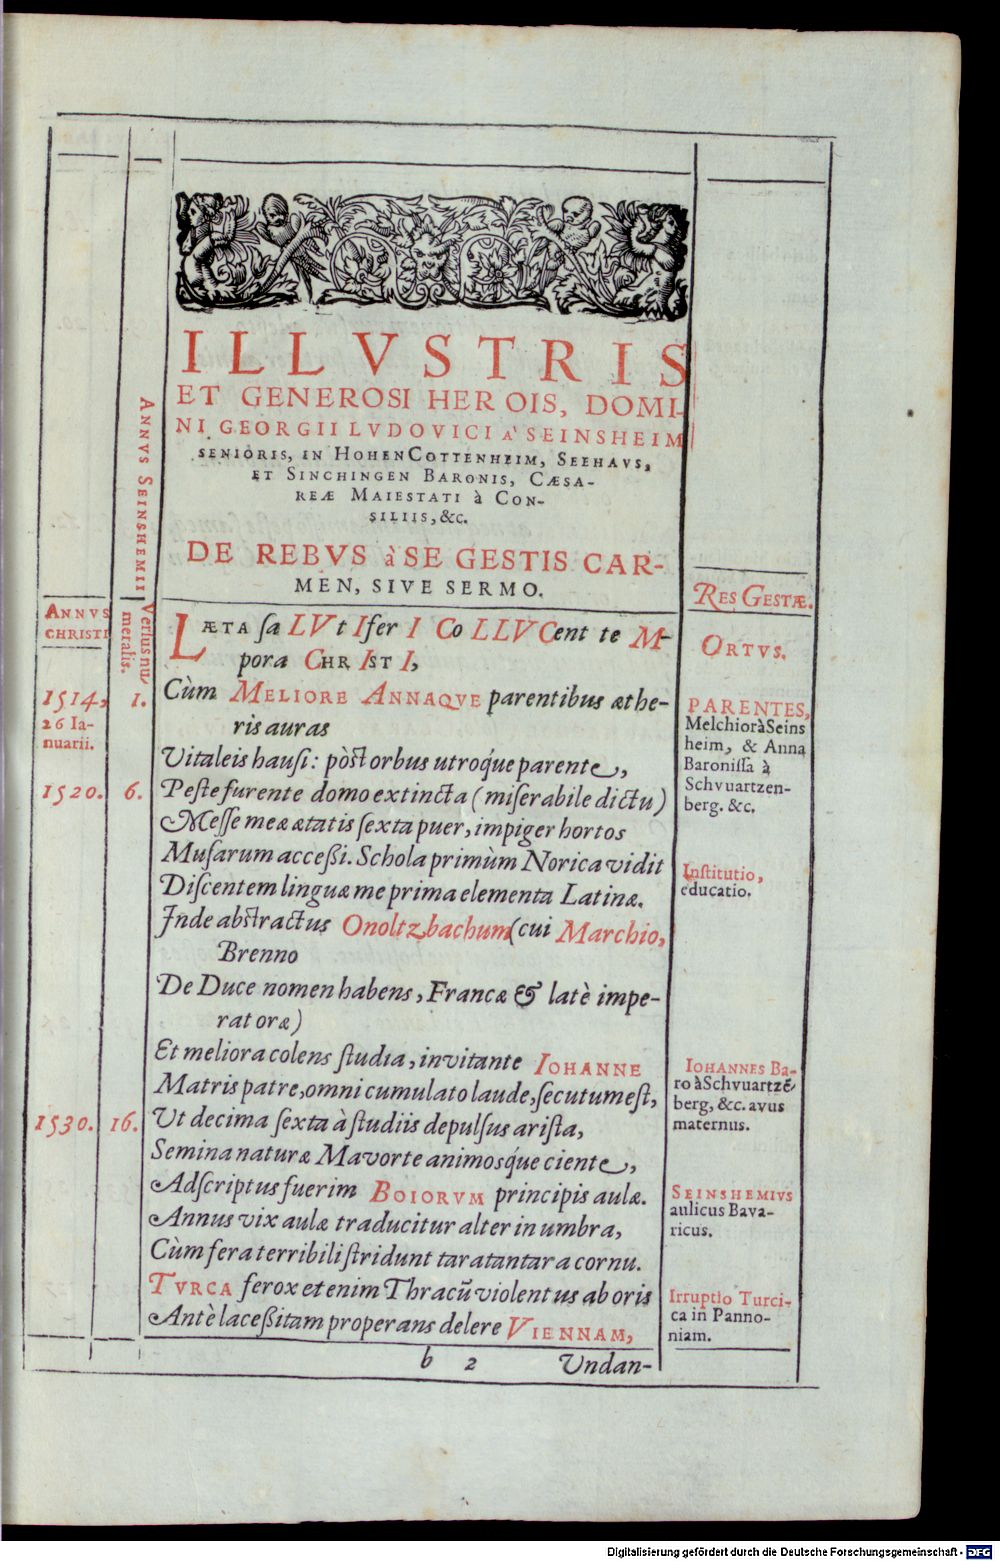 ILLVSTRIS
ET GENEROSI HEROIS, DOMI-
NI GEORGII LVDOVICI A' SEINSHEIM
SENIORIS, IN HOHENCOTTENHEIM, SEEHAVS,
ET SINCHINGEN BARONIS, CÆSA-
REÆ MAIESTATI à CON-
SILIIS, &c.
DE REBVS à SE GESTIS CAR-
MEN, SIVE SERMO.
ANNVS SEINSHEMII
Versus nu-
meralis.
ANNVS
CHRISTI
RES GESTÆ.
LÆTA sa LVt Ifer I Co LLVCent te M-
pora CHR IST I,
ORTVS.
1514,
26 Ia-
nuarii.
1.
Cùm MELIORE ANNAQVE parentibus æthe-
ris auras
Vitaleis hausi: pòst orbus utroq́ue parente,
PARENTES,
Melchior à Seins
heim, & Anna
Baronissa à
Schvuartzen-
berg. &c.
1520. 6.
Peste furente domo extincta (miserabile dictu)
Messe meæ ætatis sexta puer, impiger hortos
Musarum accessi. Schola primùm Norica vidit
Discentem linguæ me prima elementa Latinæ.
Institutio,
educatio.
Inde abstractus Onoltzbachum (cui Marchio,
Brenno
De Duce nomen habens, Francæ & latè impe-
rat oræ)
Et meliora colens studia, invitante IOHANNE
Matris patre, omni cumulato laude, secutum est,
IOHANNES Ba-
ro à Schvuartzẽ-
berg, &c. avus
maternus.
1530. 16.
Ut decima sexta à studiis depulsus arista,
Semina naturæ Mavorte animosq́ue ciente,
Adscriptus fuerim BOIORVM principis aulæ.
Annus vix aulæ traducitur alter in umbra,
Cùm fera terribili stridunt taratantara cornu.
SEINSHEMIVS
aulicus Bava-
ricus.
TVRCA ferox etenim Thracũ violentus ab oris
Antè lacessitam properans delere VIENNAM,
Irruptio Turci-
ca in Panno-
niam.
b 2
Undan-
Digitalisierung gefördert durch die Deutsche Forschungsgemeinschaft - DFG